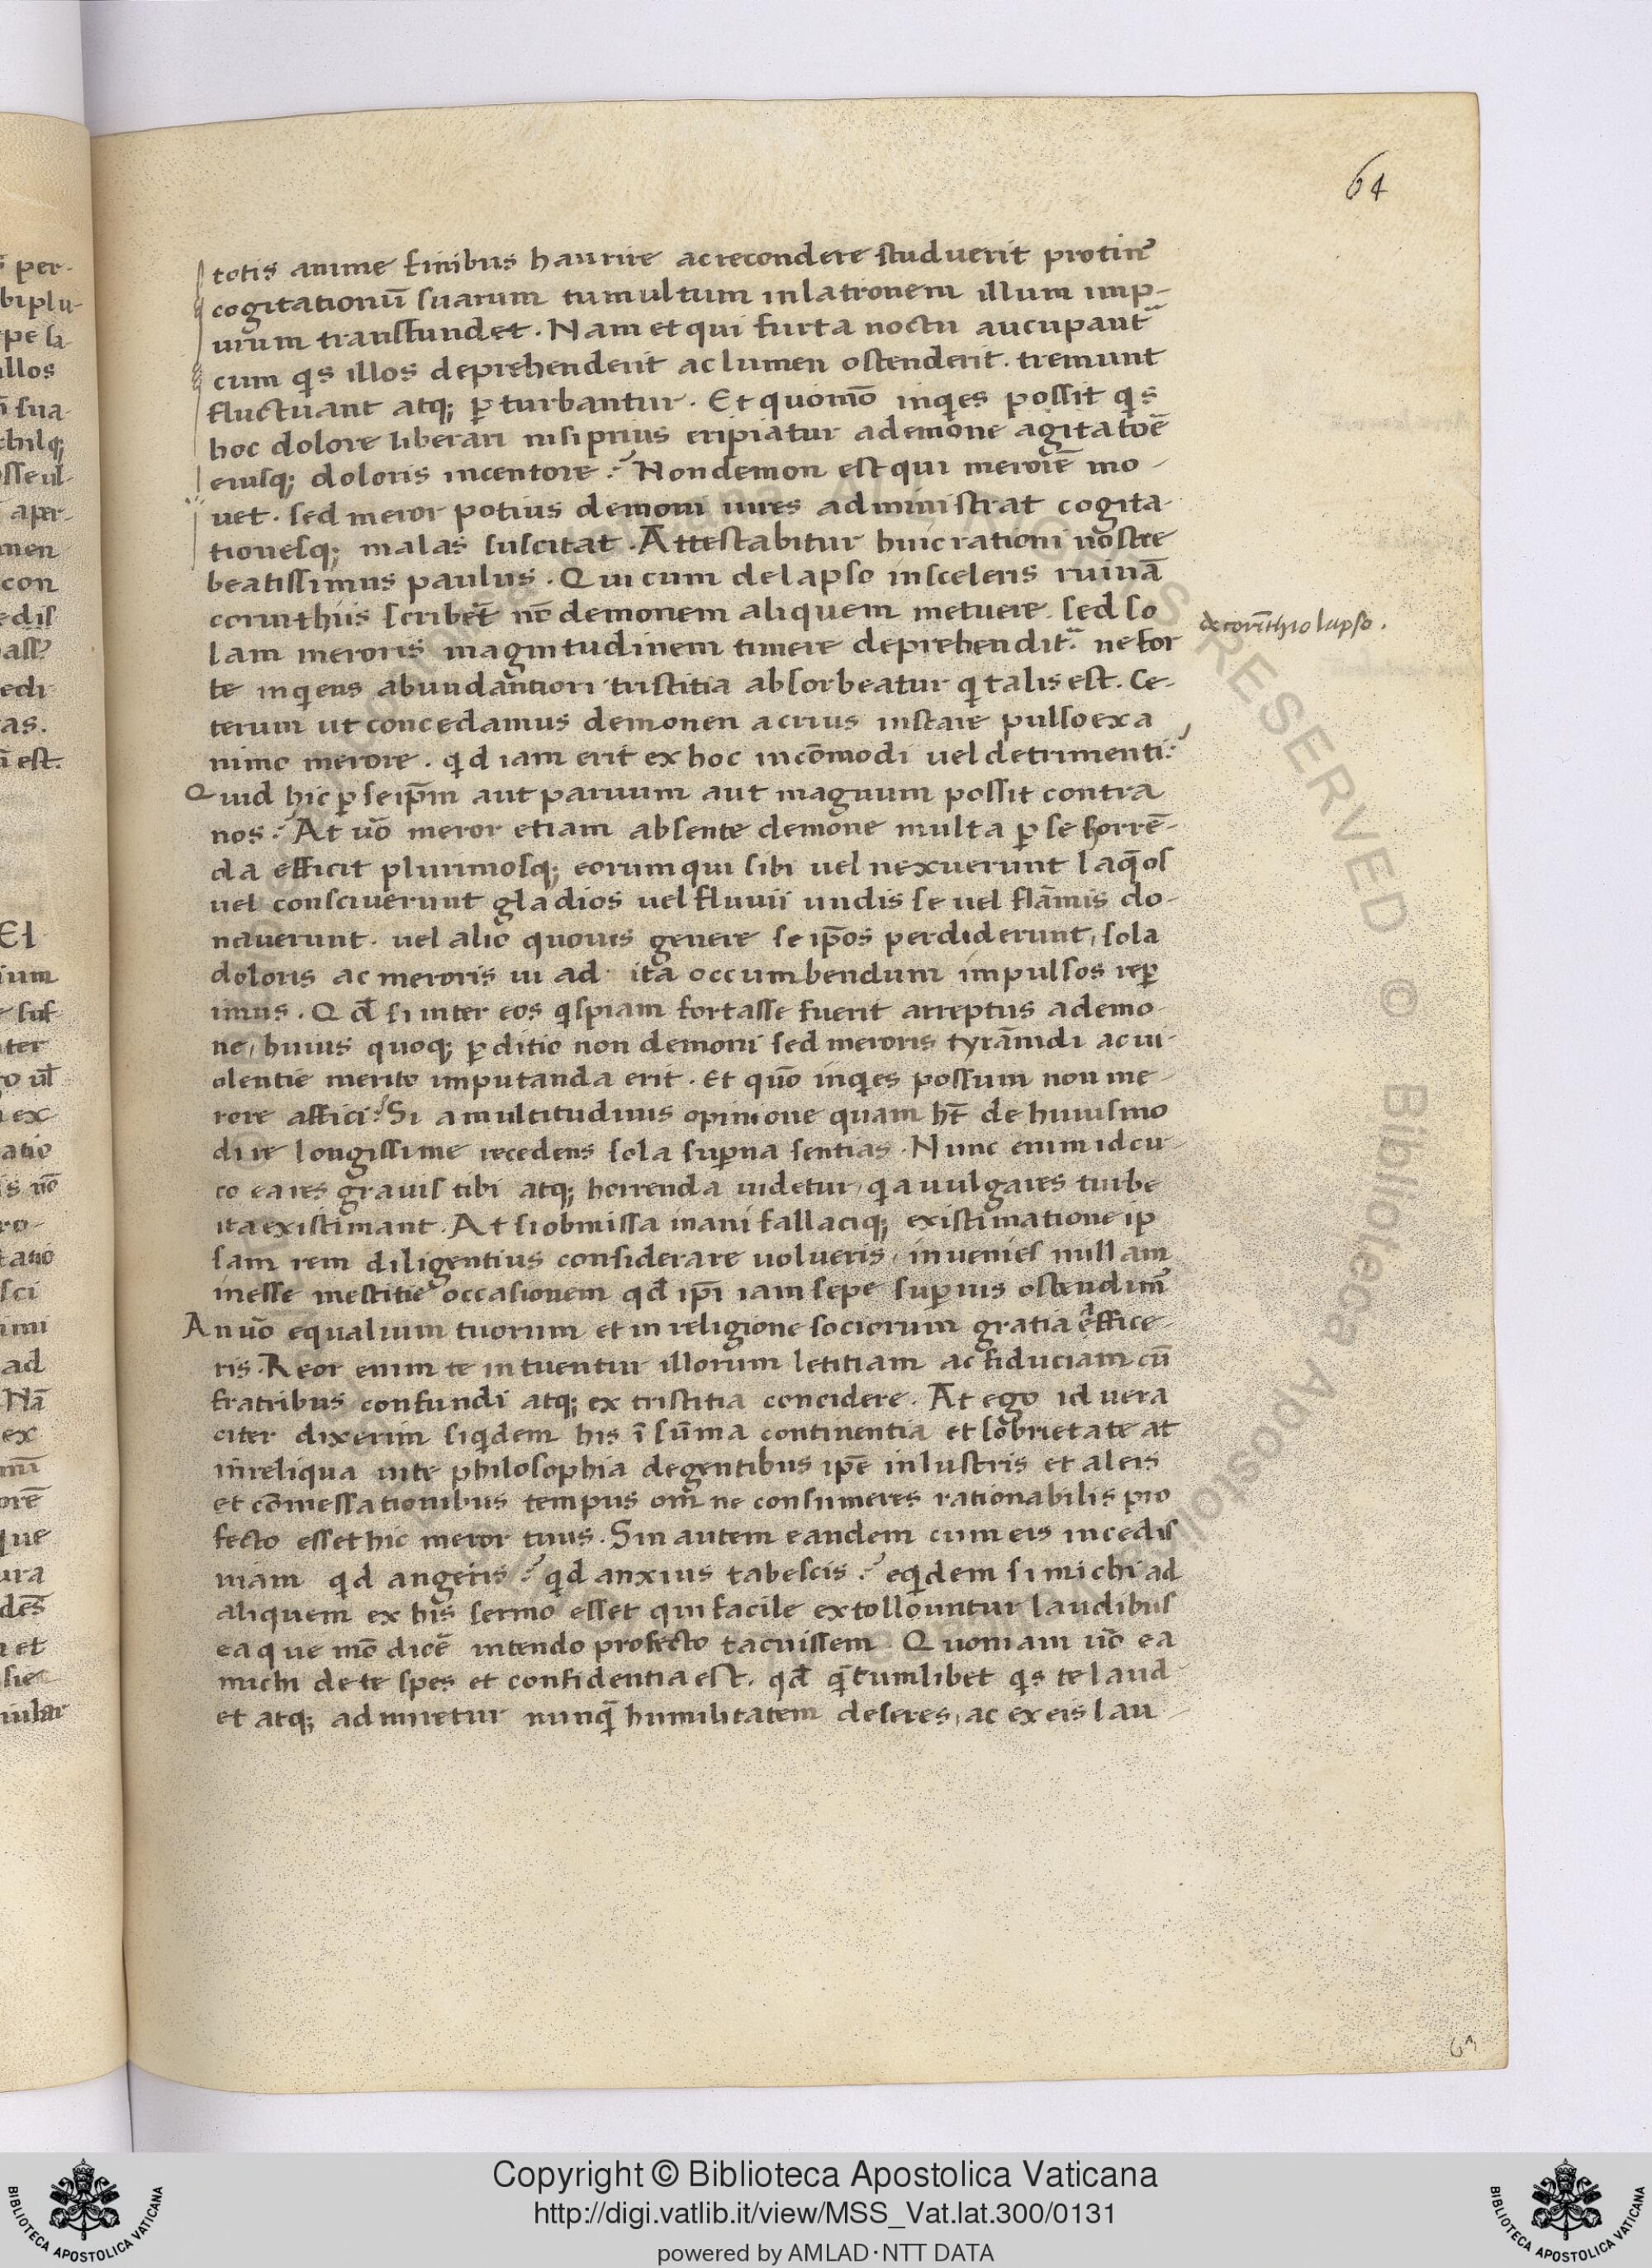 64
totis anime finibus haurire ac recondere studuerit protin᾽
cogitationū suarum tumultum in latronem illum imp-
urum transfundet. Nam et qui furta noctu aucupantr̃
cum qis illos deprehenderit ac lumen ostenderit. tremunt
fluctuant atq; ꝑturbantur. Et quomō inqies possit qis
hoc dolore liberari nisi prius eripiatur a demone agitatoē
eiusq; doloris incentore? Non demon est qui merorē mo-
uet. sed meror potius demoni uires administrat cogita-
tionesq; malas suscitat. Attestabitur huic rationi nostre
beatissimus paulus. Qui cum de lapso in sceleris ruinā
corinthiis scribet̃ nō demonem aliquem metuere. sed so
lam meroris magnitudinem timere deprehendit̃. ne for
te inqiens abundantiori tristitia absorbeatur qi talis est. Ce-
terum ut concedamus demonen acrius instare pulso ex a
nimo merore. qid iam erit ex hoc incōmodi uel detrimenti?
Quid hic ꝑ se ip̄m aut paruum aut magnum possit contra
nos? At uō meror etiam absente demone multa ꝑ se horrē-
da efficit plurimosq; eorum qui sibi uel nexuerunt laq̄os
uel consciuerunt gladios uel fluuii undis se uel flāmis do-
nauerunt. uel alio quouis genere se ip̄os perdiderunt, sola
doloris ac meroris ui ad ita occumbendum impulsos reꝑ
imus. Qd̄ si inter eos qispiam fortasse fuerit arreptus a demo-
ne, huius quoq; ꝑditio non demoni sed meroris tyrānidi ac ui-
olentie merito imputanda erit. Et quō inqies possum non me-
rore affici? Si a multitudinis opinione quam ht̄ de huiusmo
di re longissime recedens sola suꝑna sentias. Nunc enim idcir-
co ea res grauis tibi atq; horrenda uidetur, qia uulgares turbe
ita existimant. At si obmissa inani fallaciq; existimatione ip
sam rem diligentius considerare uolueris, inuenies nullam
inesse mestitie occasionem qd̄ ip̄i iam sepe suꝑius ostendim᾽
An uō equalium tuorum et in religione sociorum gratia effice-
ris. Reor enim te intuentur illorum letitiam ac fiduciam cū
fratribus confundi atq; ex tristitia concidere. At ego id uera
citer dixerim siqidem his ī sūma continentia et sobrietate at
in reliqua uite philosophia degentibus ip̄e in lustris et aleis
et cōmessationibus tempus om̄ne consumeres rationabilis pro
fecto esset hic meror tuus. Sin autem eandem cum eis incedis
uiam qid angeris? qid anxius tabescis? eqidem si michi ad
aliquem ex his sermo esset qui facile extollountur laudibus
ea que mō dicē intendo profecto tacuissem. Quoniam uō ea
michi de te spes et confidentia est. qd̄ qāntumlibet qis te laud-
et atq; admiretur nunqā humilitatem deseres, ac ex eis lau-
de corīthio lapso.
Copyright © Biblioteca Apostolica Vaticana
http://digi.vatlib.it/view/MSS_Vat.lat.300/0131
powered by AMLAD·NTT DATA